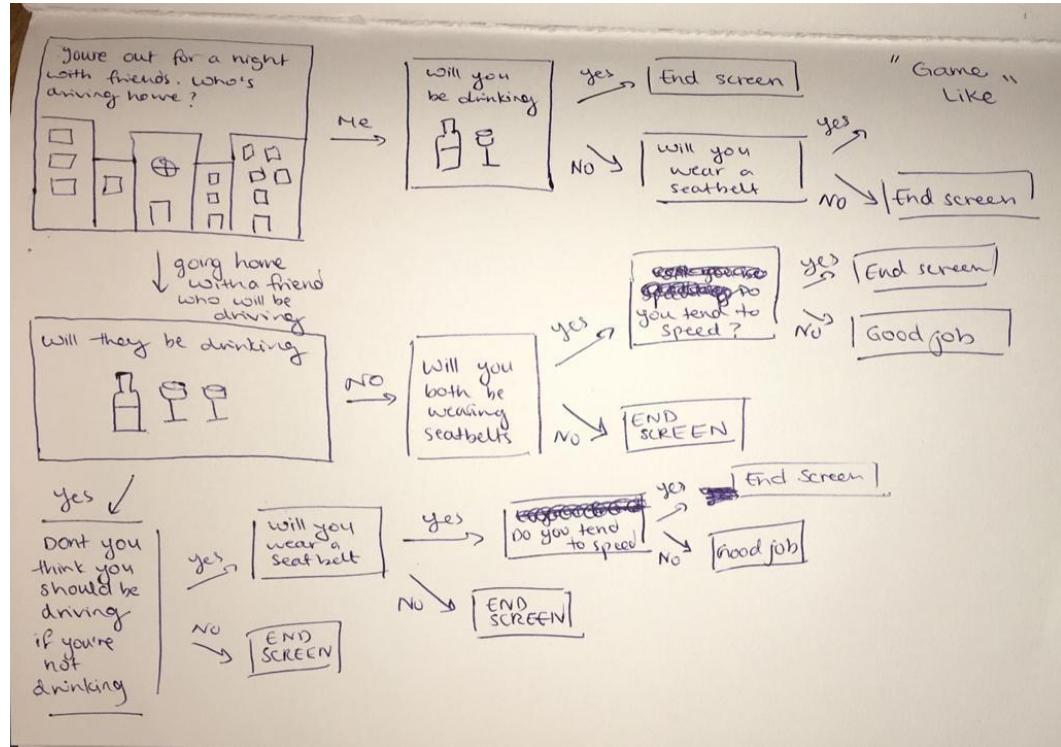 Youre out for a night
with friends. Who's
driving home?
Me
Will you
be drinking
yes
End screen
"Game
Like"
NO
Will you
wear a
seatbelt
yes
NO
End screen
going home
with a friend
who will be
driving
Will they be drinking
NO
Will you
both be
wearing
seatbelts
yes
Do
you tend to
speed?
yes
End screen
No
Good job
No
END
SCREEN
yes
Dont you
think you
should be
driving
if you're
not
drinking
yes
Will you
wear a
seatbelt
yes
Do you tend
to speed
yes
End Screen
No
Good job
No
END
SCREEN
NO
END
SCREEN